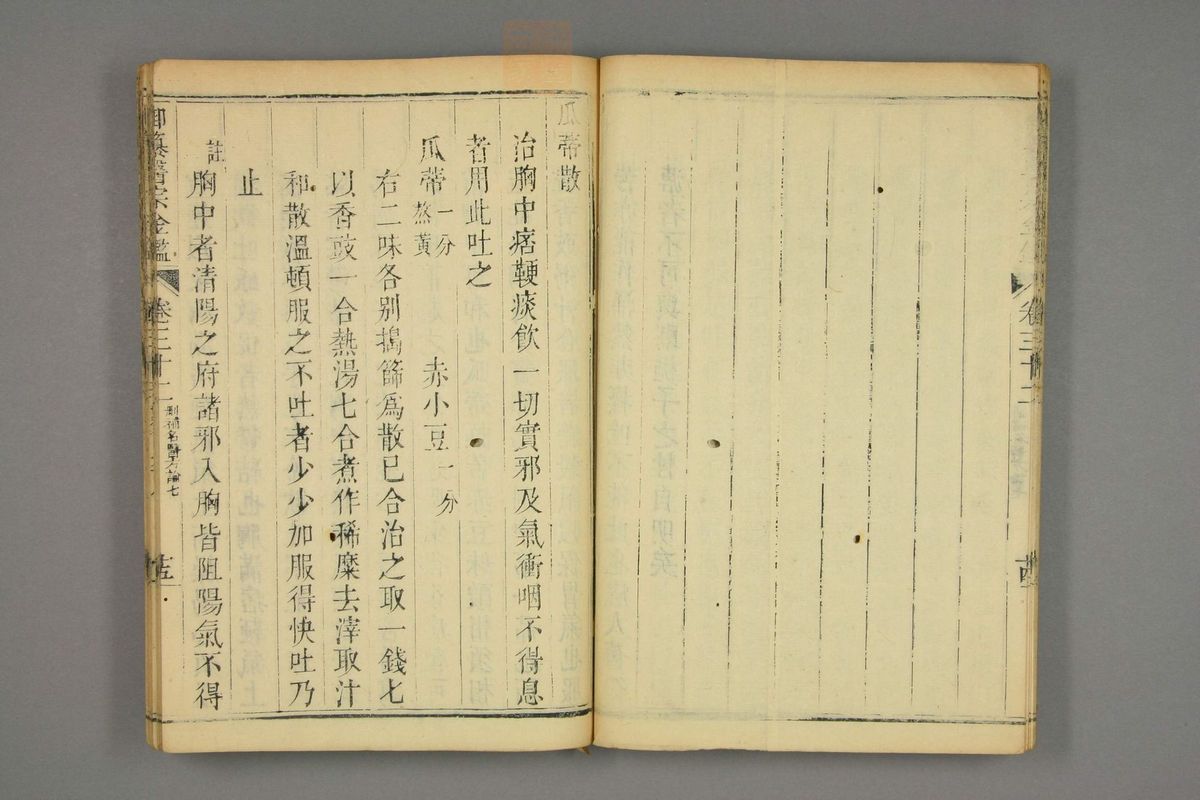 卷三十二
瓜蒂散
治胸中痞鞕痰飲一切實邪及氣衝咽不得息
者用此吐之
瓜蒂一分熬黃 赤小豆一分
右二味各别搗篩爲散已合治之取一錢七
以香豉一合熱湯七合煮作稀糜去滓取汁
和散溫頓服之不吐者少少加服得快吐乃
止
註
胸中者清陽之府諸邪入胸皆阻陽氣不得
御纂醫宗金鑑 卷三十二 刪補名醫方論七